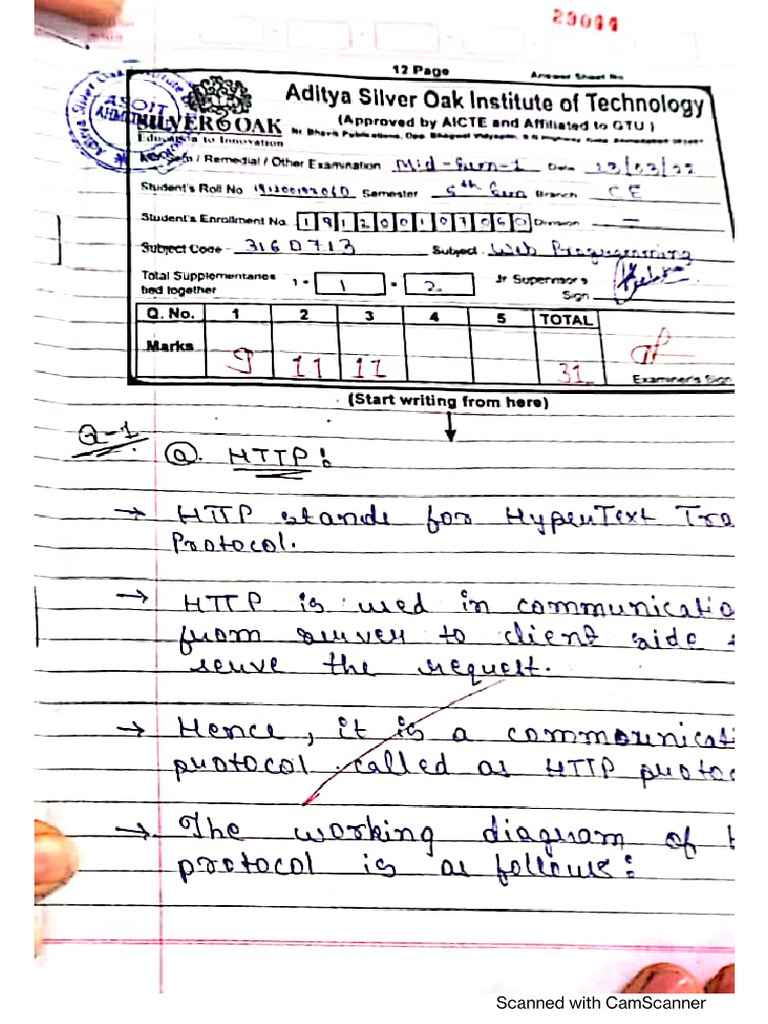 29044
12 Page
Answer Sheet No
ASOIT
SILVER OAK
Education to Innovation
Aditya Silver Oak Institute of Technology
(Approved by AICTE and Affiliated to GTU)
/ Remedial / Other Examination Mid-Sem-1 Date
Student's Roll No Semester 6th Sem Branch CE
Student's Enrollment No. 191200107060 Division -
Subject Code - 3160713 Subject Web Programming
Total Supplementaries tied together 1 + 1 = 2 Jr Supervisor's Sign
Q. No. 1 2 3 4 5 TOTAL
Marks 9 11 11 31
Examiner's Sign
(Start writing from here)
Q-1
(a). HTTP:
→ HTTP stands for HyperText Tra
Protocol.
→ HTTP is used in communicatio
from server to client side
serve the request.
→ Hence, it is a communicati
protocol called as HTTP protoc
→ The working diagram of
protocol is as follows:
Scanned with CamScanner